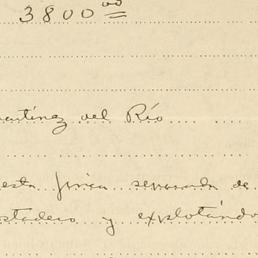 3800.00
artínez del Río
esta finca separada de
stadero y explotándo